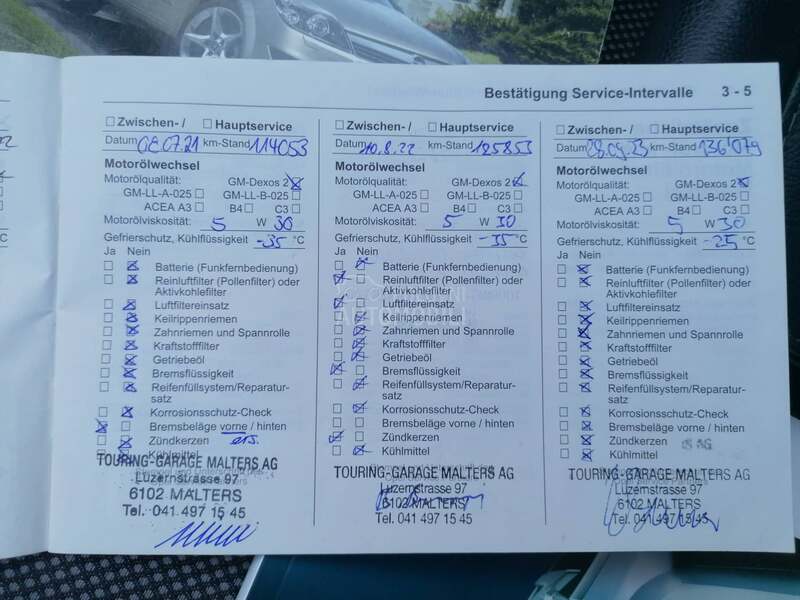 Bestätigung Service-Intervalle 3 - 5
Zwischen- / Hauptservice
Datum 02.07.21 km-Stand 114053
Motorölwechsel
Motorölqualität: GM-Dexos 2
GM-LL-A-025 GM-LL-B-025
ACEA A3 B4 C3
Motorölviskosität: 5 W 30
Gefrierschutz, Kühlflüssigkeit -35 °C
Ja Nein
Batterie (Funkfernbedienung)
Reinluftfilter (Pollenfilter) oder
Aktivkohlefilter
Luftfiltereinsatz
Keilrippenriemen
Zahnriemen und Spannrolle
Kraftstofffilter
Getriebeöl
Bremsflüssigkeit
Reifenfüllsystem/Reparatur-
satz
Korrosionsschutz-Check
Bremsbeläge vorne / hinten
Zündkerzen ers.
Kühlmittel
TOURING-GARAGE MALTERS AG
Luzernstrasse 97
6102 MALTERS
Tel. 041 497 15 45
Zwischen- / Hauptservice
Datum 10.8.22 km-Stand 125853
Motorölwechsel
Motorölqualität: GM-Dexos 2
GM-LL-A-025 GM-LL-B-025
ACEA A3 B4 C3
Motorölviskosität: 5 W 30
Gefrierschutz, Kühlflüssigkeit -35 °C
Ja Nein
Batterie (Funkfernbedienung)
Reinluftfilter (Pollenfilter) oder
Aktivkohlefilter
Luftfiltereinsatz
Keilrippenriemen
Zahnriemen und Spannrolle
Kraftstofffilter
Getriebeöl
Bremsflüssigkeit
Reifenfüllsystem/Reparatur-
satz
Korrosionsschutz-Check
Bremsbeläge vorne / hinten
Zündkerzen
Kühlmittel
TOURING-GARAGE MALTERS AG
Luzernstrasse 97
6102 MALTERS
Tel. 041 497 15 45
Zwischen- / Hauptservice
Datum 28.09.23 km-Stand 136'079
Motorölwechsel
Motorölqualität: GM-Dexos 2
GM-LL-A-025 GM-LL-B-025
ACEA A3 B4 C3
Motorölviskosität: 5 W 30
Gefrierschutz, Kühlflüssigkeit -25 °C
Ja Nein
Batterie (Funkfernbedienung)
Reinluftfilter (Pollenfilter) oder
Aktivkohlefilter
Luftfiltereinsatz
Keilrippenriemen
Zahnriemen und Spannrolle
Kraftstofffilter
Getriebeöl
Bremsflüssigkeit
Reifenfüllsystem/Reparatur-
satz
Korrosionsschutz-Check
Bremsbeläge vorne / hinten
Zündkerzen
Kühlmittel
TOURING-GARAGE MALTERS AG
Luzernstrasse 97
6102 MALTERS
Tel. 041 497 15 45